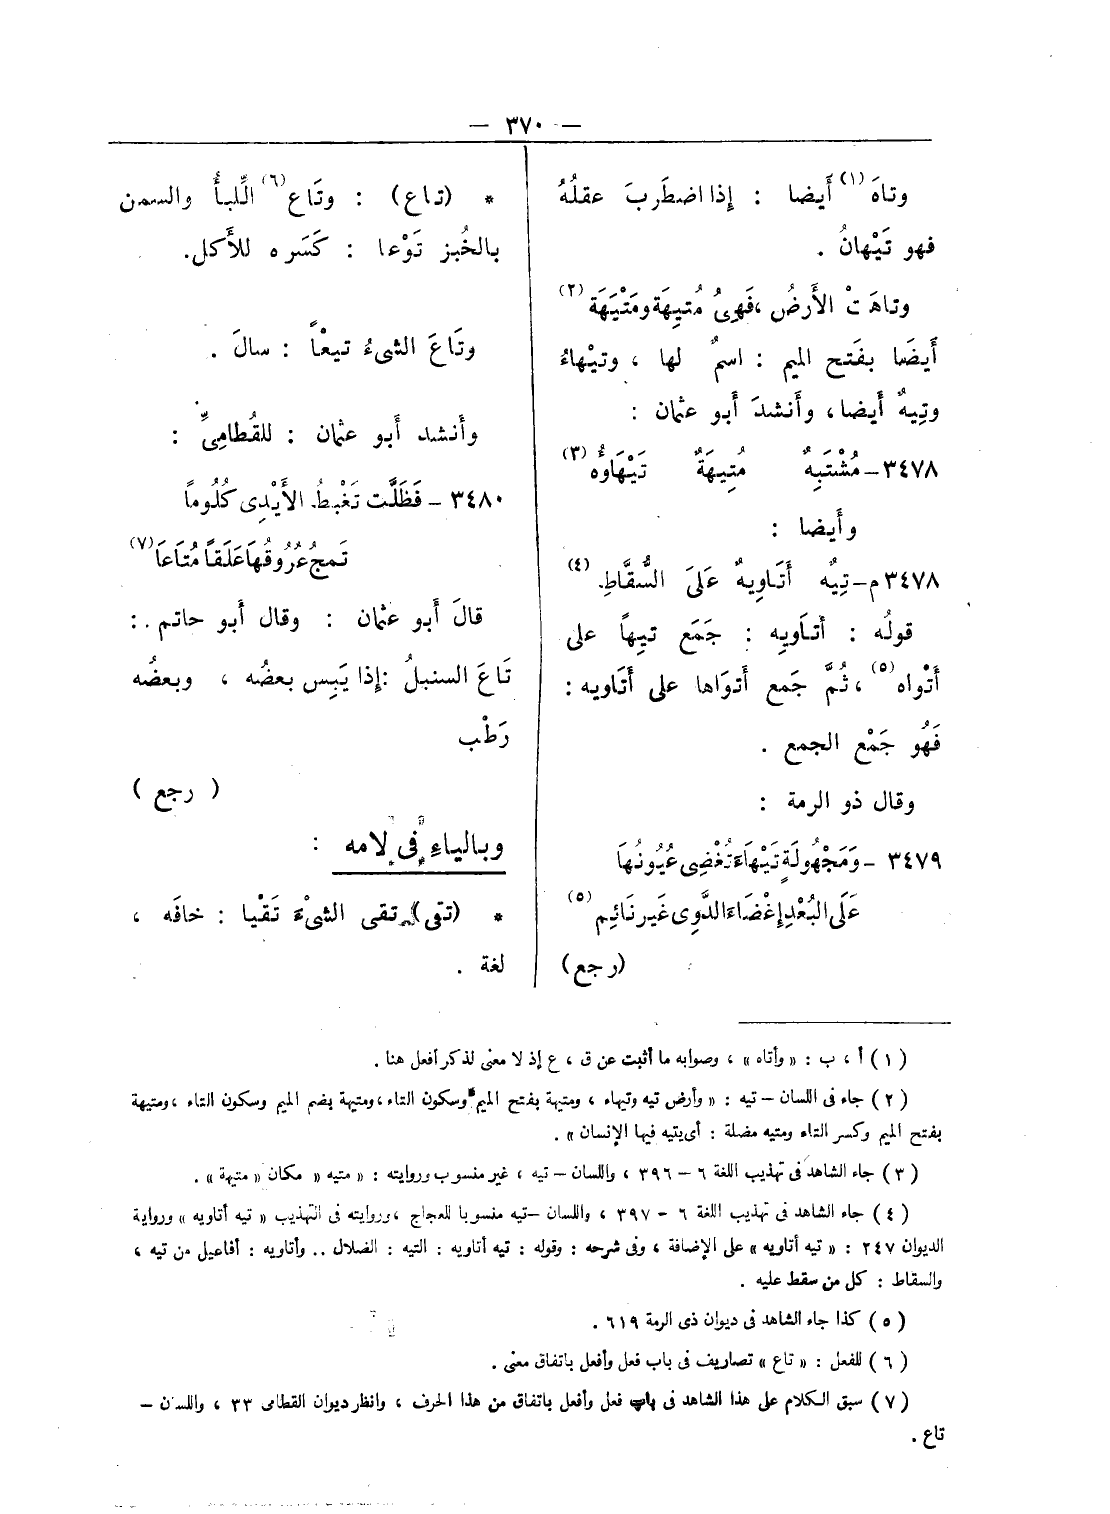 — ٣٧٠ —
وتاهَ (١) أَيضا : إِذا اضطَربَ عقلُهُ
فهو تَيْهانُ .
وتاهَتْ الأَرضُ ، فَهِىُ مُتيِهَة ومَتْيَهَة (٢)
أَيضَا بفَتح الميم : اسمٌ لها ، وتيْهاءُ
وتِيهٌ أَيضا ، وأَنشدَ أَبو عثمان :
٣٤٧٨ – مُشْتَبِهٌ مُتِيهَةٌ تَيْهَاوُه (٣)
وأَيضا :
٣٤٧٨م – تِيٌه أَتَاوِيهٌ عَلىَ السُّقَّاطِ (٤)
قولُه : أتاَويه : جَمَع تيهاً على
أَتْواه (٥) ، ثُمَّ جَمع أَتوَاها على أَتَاويه :
فَهُو جَمْع الجمع .
وقال ذو الرمة :
٣٤٧٩ – وَمَجْهُولَةٍ تَيْهَاءَ تُغْضِى عُيُونُهَا
عَلَى البُعْدِ إِغْضَاءَ الدَّوِى غَيرنَائِم (٥)
(رجع)
* (تاع) : وتَاع (٦) الِّلبأُ والسمن
بالخُبز تَوْعا : كَسَره للأَكل.
وتَاعَ الشىءُ تيعْاً : سالَ .
وأَنشد أَبو عثمان : للقُطامِىِّ :
٣٤٨٠ – فَظَلَّت تَعْبِطُ الأَيْدِى كُلُوماً
تَمجُ عُرُوقُهَا عَلَقاً مُتَاعَا (٧)
قالَ أَبو عثمان : وقال أَبو حاتم :
تَاعَ السنبلُ : إِذا يَبِس بعضُه ، وبعضُه
رَطْب
( رجع )
وبالياءِ فى لامه :
* (تقى) تقى الشىْءَ تَقْيا : خافَه ،
لغة .
(١) أ ، ب : « وأتاه » ، وصوابه ما أثبت عن ق ، ع إذ لا معنى لذكر أفعل هنا .
(٢) جاء فى اللسان – تيه : « وأرض تيه وتيهاء ، ومتيهة بفتح الميم وسكون التاء ، ومتيهة بضم الميم وسكون التاء ، ومتيهة
بفتح الميم وكسر التاء ومتيه مضلة : أى يتيه فيها الإنسان » .
(٣) جاء الشاهد فى تهذيب اللغة ٦ – ٣٩٦ ، واللسان – تيه ، غير منسوب وروايته : « متيه » مكان « متيهة » .
(٤) جاء الشاهد فى تهذيب اللغة ٦ – ٣٩٧ ، واللسان – تيه منسوبا للعجاج ، وروايته فى التهذيب « تيه أتاويه » ورواية
الديوان ٢٤٧ : « تيه أتاويه » على الإضافة ، وفى شرحه : وقوله : تيه أتاويه : التيه : الضلال .. وأتاويه : أفاعيل من تيه ،
والسقاط : كل من سقط عليه .
(٥) كذا جاء الشاهد فى ديوان ذى الرمة ٦١٩ .
(٦) للفعل : « تاع » تصاريف فى باب فعل وأفعل باتفاق معنى .
(٧) سبق الكلام على هذا الشاهد فى باب فعل وأفعل باتفاق من هذا الحرف ، وانظر ديوان القطامى ٣٣ ، واللسان –
تاع .